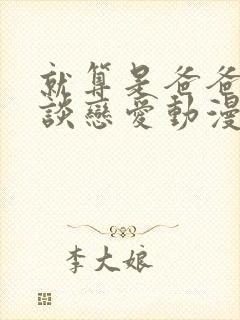 就算是爸爸
談戀愛動漫
李大娘